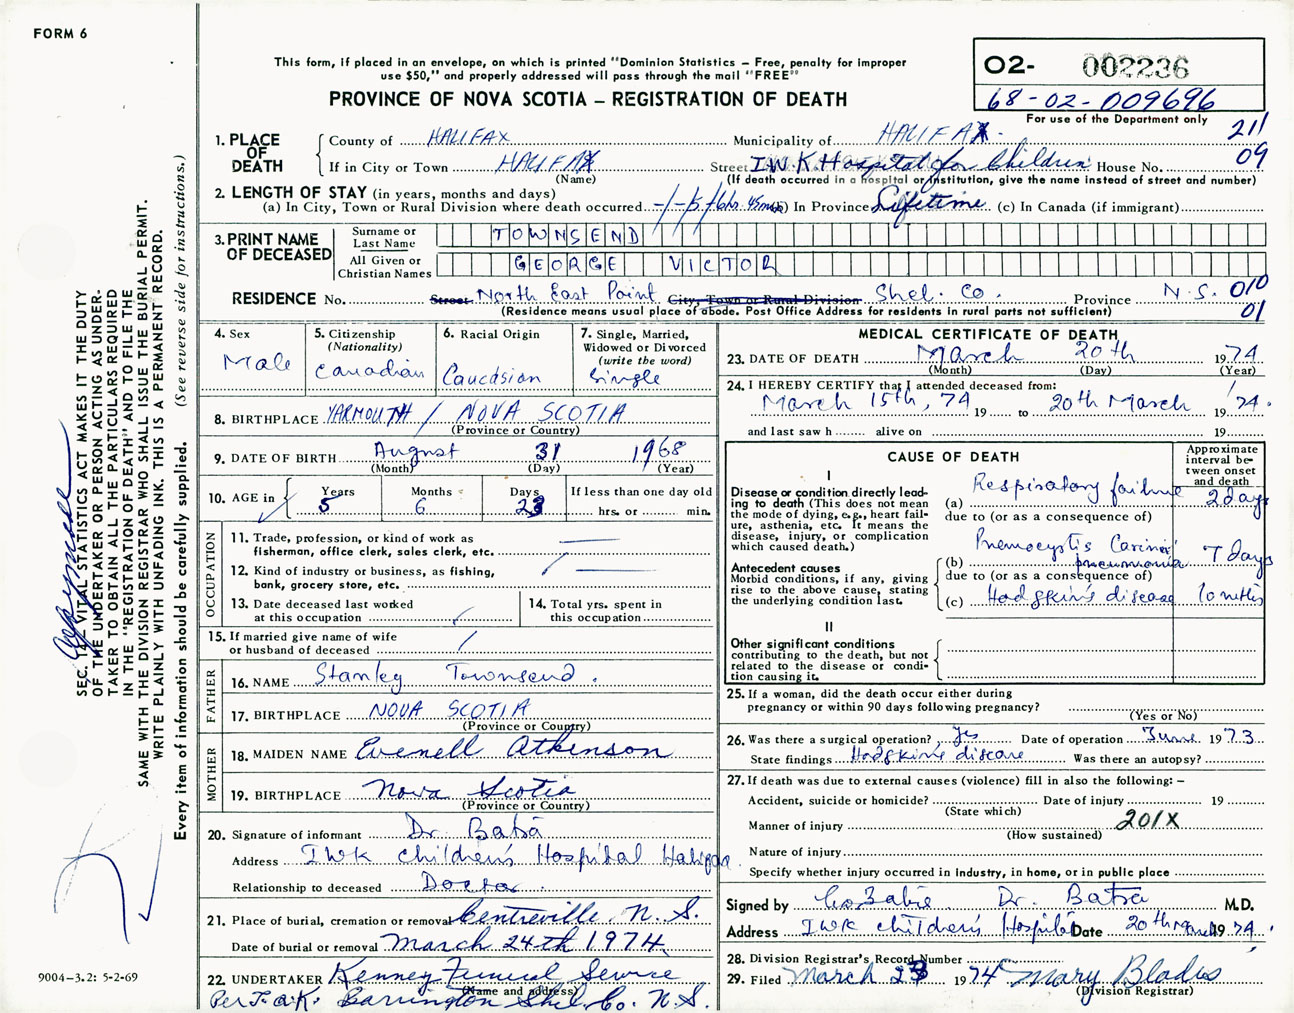 FORM 6
This form, if placed in an envelope, on which is printed "Dominion Statistics – Free, penalty for improper
use $50," and properly addressed will pass through the mail "FREE"
PROVINCE OF NOVA SCOTIA – REGISTRATION OF DEATH
02- 002236
68-02-009696
For use of the Department only
211
09
1. PLACE OF DEATH
County of HALIFAX Municipality of HALIFAX
If in City or Town HALIFAX Street I.W.K Hospital for Children House No.
(Name) (If death occurred in a hospital or institution, give the name instead of street and number)
2. LENGTH OF STAY (in years, months and days)
(a) In City, Town or Rural Division where death occurred (b) In Province Lifetime (c) In Canada (if immigrant)
3. PRINT NAME OF DECEASED
Surname or Last Name TOWNSEND
All Given or Christian Names GEORGE VICTOR
RESIDENCE No. Street North East Point City, Town or Rural Division Shel. Co. Province N.S. 010
(Residence means usual place of abode. Post Office Address for residents in rural parts not sufficient) 01
4. Sex Male
5. Citizenship (Nationality) Canadian
6. Racial Origin Caucasian
7. Single, Married, Widowed or Divorced (write the word) Single
8. BIRTHPLACE YARMOUTH / NOVA SCOTIA
(Province or Country)
9. DATE OF BIRTH August 31 1968
(Month) (Day) (Year)
10. AGE in Years 5 Months 6 Days 23 If less than one day old hrs. or min.
OCCUPATION
11. Trade, profession, or kind of work as
fisherman, office clerk, sales clerk, etc.
12. Kind of industry or business, as fishing,
bank, grocery store, etc.
13. Date deceased last worked
at this occupation
14. Total yrs. spent in
this occupation
15. If married give name of wife
or husband of deceased
FATHER
16. NAME Stanley Townsend.
17. BIRTHPLACE NOVA SCOTIA
(Province or Country)
MOTHER
18. MAIDEN NAME Evenell Atkinson
19. BIRTHPLACE Nova Scotia
(Province or Country)
20. Signature of informant Dr. Batra
Address IWK Children's Hospital Halifax
Relationship to deceased Doctor.
21. Place of burial, cremation or removal Centreville, N.S.
Date of burial or removal March 24th 1974
22. UNDERTAKER Kenney Funeral Service
(Name and address)
Per Barrington Shel. Co. N.S.
MEDICAL CERTIFICATE OF DEATH
23. DATE OF DEATH March 20th 1974
(Month) (Day) (Year)
24. I HEREBY CERTIFY that I attended deceased from:
March 15th, 74 19 to 20th March 1974.
and last saw h alive on 19
CAUSE OF DEATH
Approximate interval between onset and death
I
Disease or condition directly lead-
ing to death (This does not mean
the mode of dying, e.g., heart fail-
ure, asthenia, etc. It means the
disease, injury, or complication
which caused death.)
(a) Respiratory failure 2 days
due to (or as a consequence of)
Antecedent causes
Morbid conditions, if any, giving
rise to the above cause, stating
the underlying condition last.
(b) Pnemocystis Carinii pneumonia 7 days
due to (or as a consequence of)
(c) Hodgkin's disease 10 mths
II
Other significant conditions
contributing to the death, but not
related to the disease or condi-
tion causing it.
25. If a woman, did the death occur either during
pregnancy or within 90 days following pregnancy?
(Yes or No)
26. Was there a surgical operation? Yes Date of operation June 1973
State findings Hodgkin's disease Was there an autopsy?
27. If death was due to external causes (violence) fill in also the following: –
Accident, suicide or homicide? Date of injury 19
(State which)
Manner of injury 201X
(How sustained)
Nature of injury
Specify whether injury occurred in industry, in home, or in public place
Signed by Dr. Batra M.D.
Address IWK Children's Hospital Date 20th March 1974.
28. Division Registrar's Record Number
29. Filed March 23 1974 Mary Blades
(Division Registrar)
SEC. 14. VITAL STATISTICS ACT MAKES IT THE DUTY
OF THE UNDERTAKER OR PERSON ACTING AS UNDER-
TAKER TO OBTAIN ALL THE PARTICULARS REQUIRED
IN THE "REGISTRATION OF DEATH" AND TO FILE THE
SAME WITH THE DIVISION REGISTRAR WHO SHALL ISSUE THE BURIAL PERMIT.
WRITE PLAINLY WITH UNFADING INK. THIS IS A PERMANENT RECORD.
Every item of information should be carefully supplied. (See reverse side for instructions.)
9004-3.2: 5-2-69